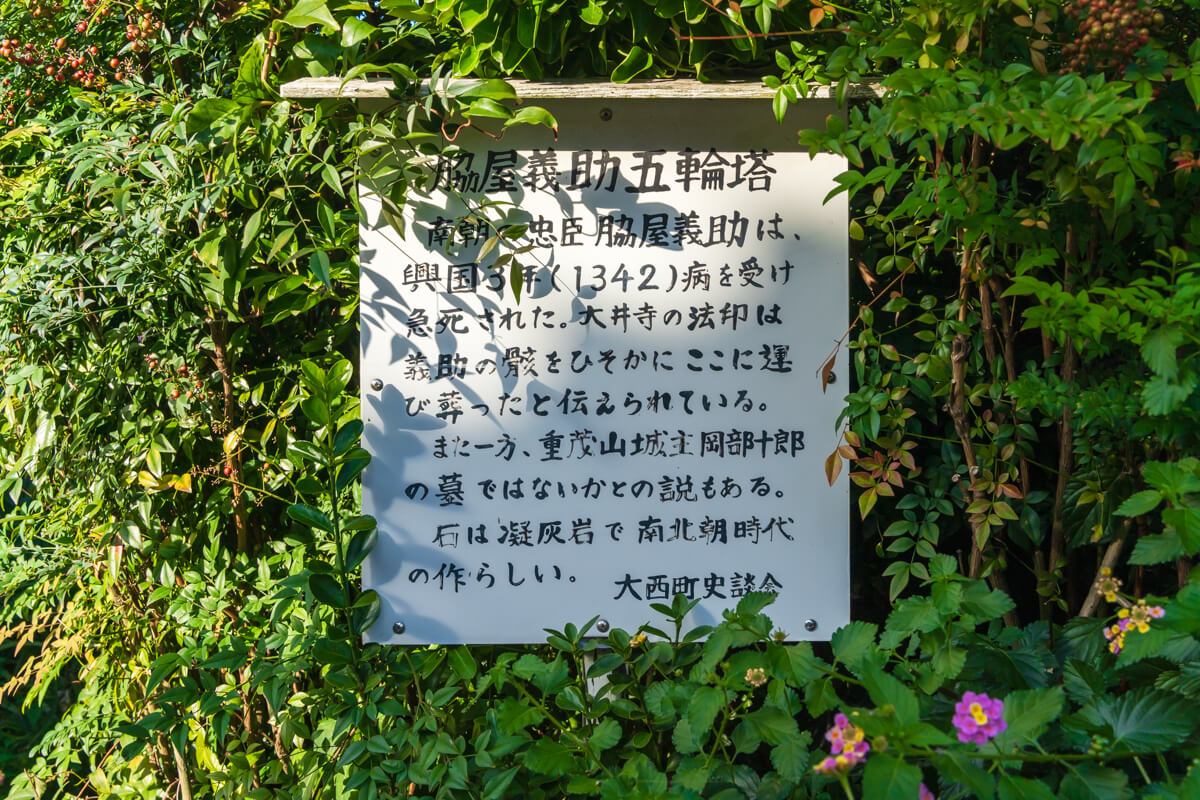 脇屋義助五輪塔
南朝 忠臣脇屋義助は、
興国3年(1342)病を受け
急死された。大井寺の法印は
義助の骸をひそかにここに運
び葬ったと伝えられている。
また一方、重茂山城主岡部十郎
の墓ではないかとの説もある。
石は凝灰岩で南北朝時代
の作らしい。
大西町史談会